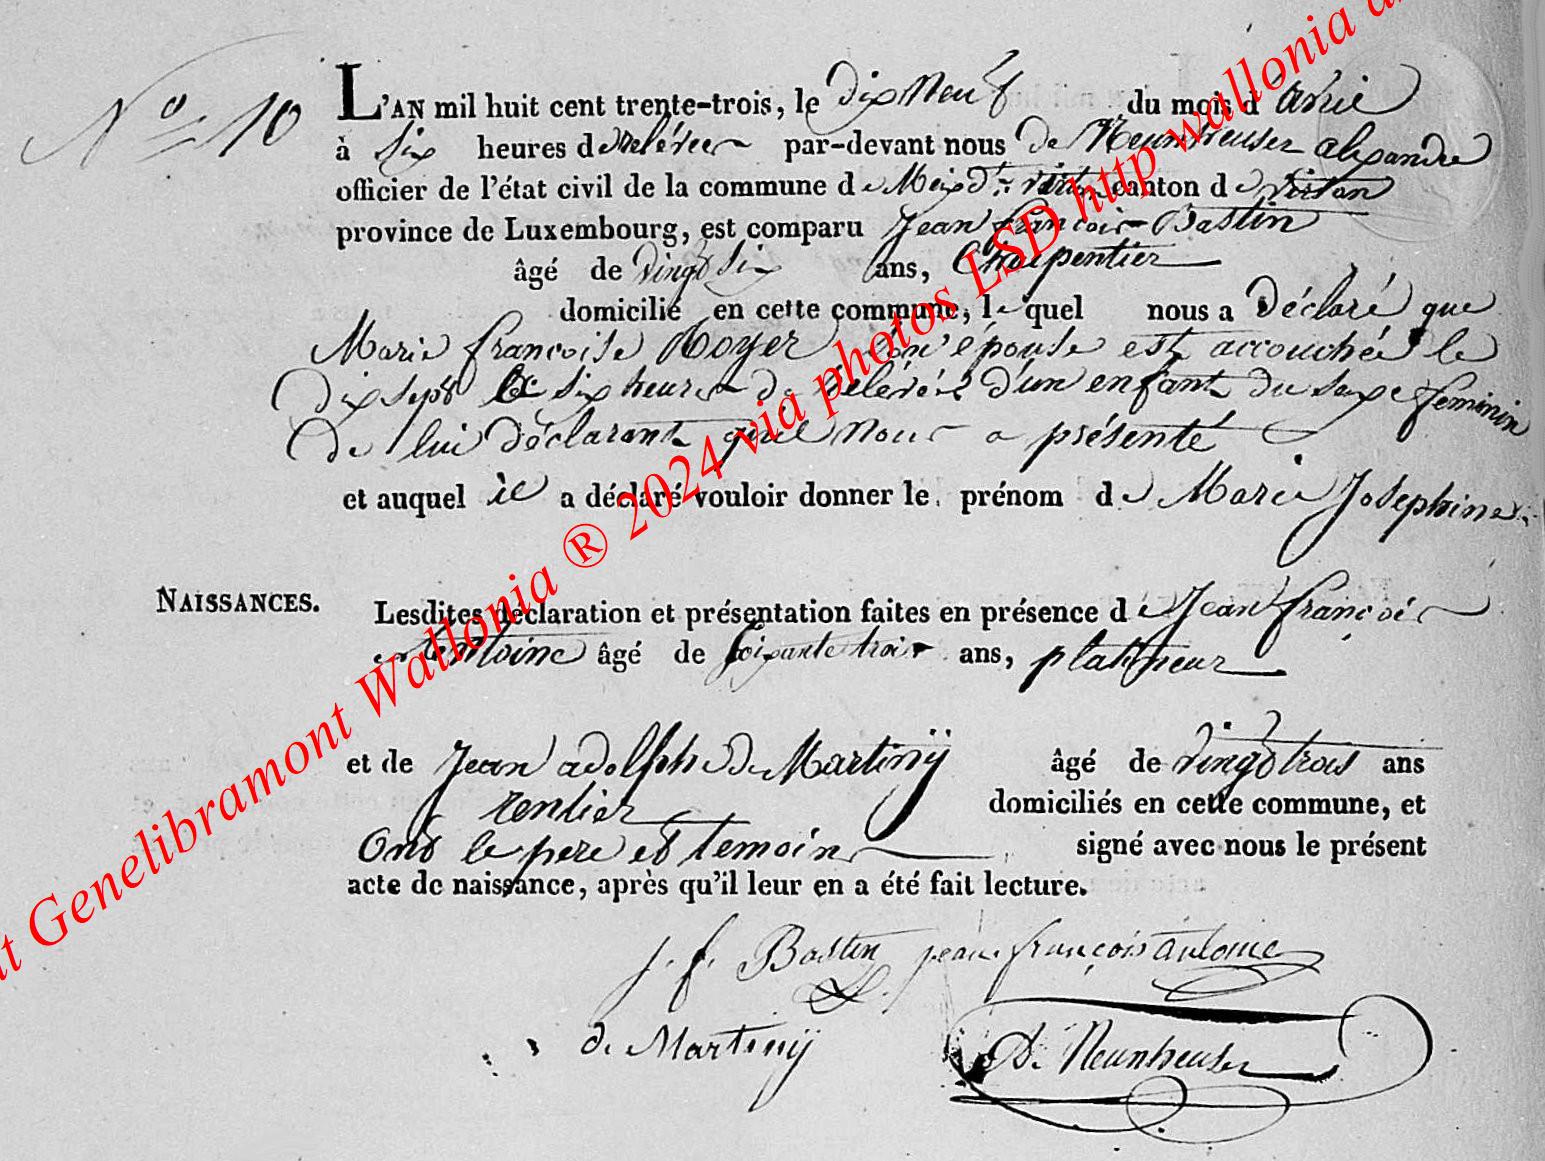 N° 10
L'AN mil huit cent trente-trois, le dix neuf du mois d'avril
à six heures de relévée par-devant nous de Neunheuser alexandre
officier de l'état civil de la commune de Meix dt virton canton de virton
province de Luxembourg, est comparu Jean françois Bastin
âgé de vingt six ans, Charpentier
domicilié en cette commune, lequel nous a déclaré que
Marie françoise Royer son épouse est accouchée le
dix sept à six heures de relévée d'un enfant du sexe feminin
de lui déclarant qu'il nous a présenté
et auquel il a déclaré vouloir donner le prénom de Marie Josephine
NAISSANCES.
Lesdites déclaration et présentation faites en présence de Jean françois
antoine âgé de soixante trois ans, plafineur
et de Jean adolphe de Martiny âgé de vingt trois ans
rentier domiciliés en cette commune, et
Ont le pere et temoins signé avec nous le présent
acte de naissance, après qu'il leur en a été fait lecture.
j. f. Bastin jean françois antoine
de Martinÿ De Neunheuser
Genelibramont Wallonia ® 2024 via photos LSD http wallonia